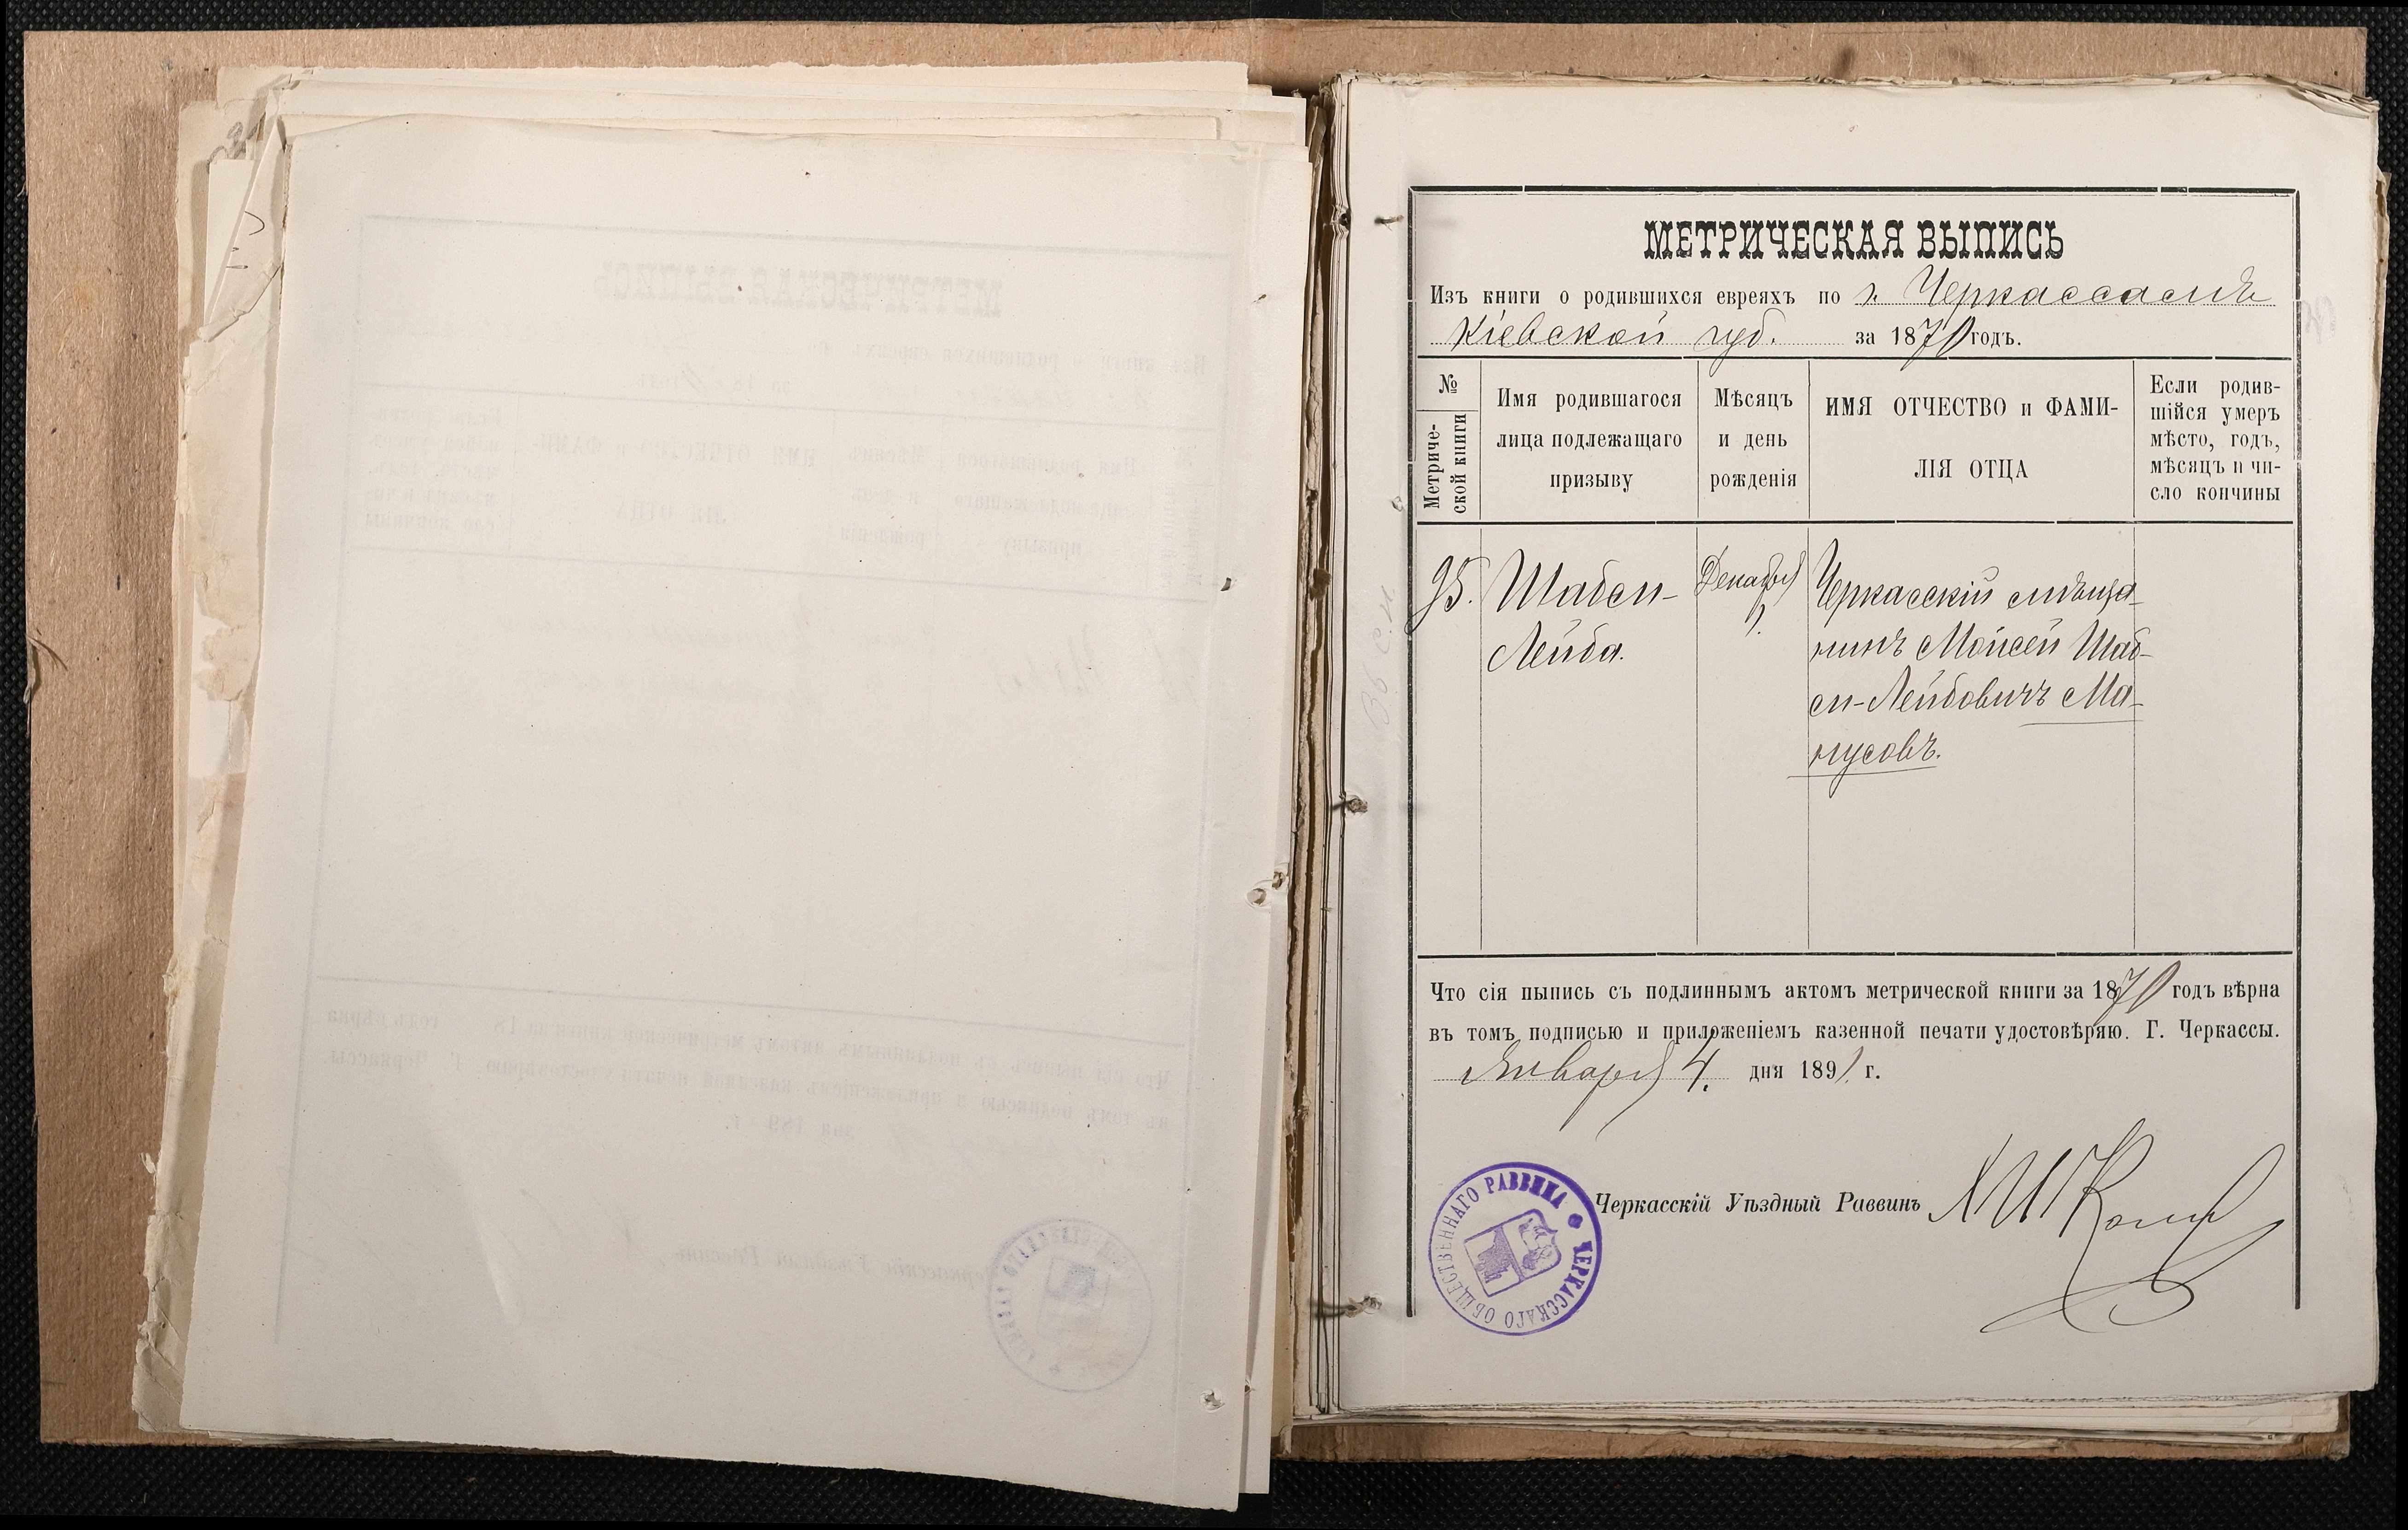 МЕТРИЧЕСКАЯ ВЫПИСЬ
Изъ книги о родившихся евреяхъ по г. Черкассамъ
Кіевской губ. за 1870 годъ.
№ Метриче-
ской книги
Имя родившагося
лица подлежащаго
призыву
Мѣсяцъ
и день
рожденія
ИМЯ ОТЧЕСТВО и ФАМИ-
ЛІЯ ОТЦА
Если родив-
шійся умеръ
мѣсто, годъ,
мѣсяцъ и чи-
сло кончины
95.
Шабси-
Лейба.
Декабря
Черкасскій мѣща-
нинъ Мойсей Шаб-
си-Лейбовичъ Ма-
нусовъ.
Что сія пыпись съ подлиннымъ актомъ метрической книги за 1870 годъ вѣрна
въ томъ подписью и приложеніемъ казенной печати удостовѣряю. Г. Черкассы.
Января 4. дня 1891. г.
Черкасскій Уѣздный Раввинъ
ЧЕРКАССКАГО ОБЩЕСТВЕННАГО РАВВИНА